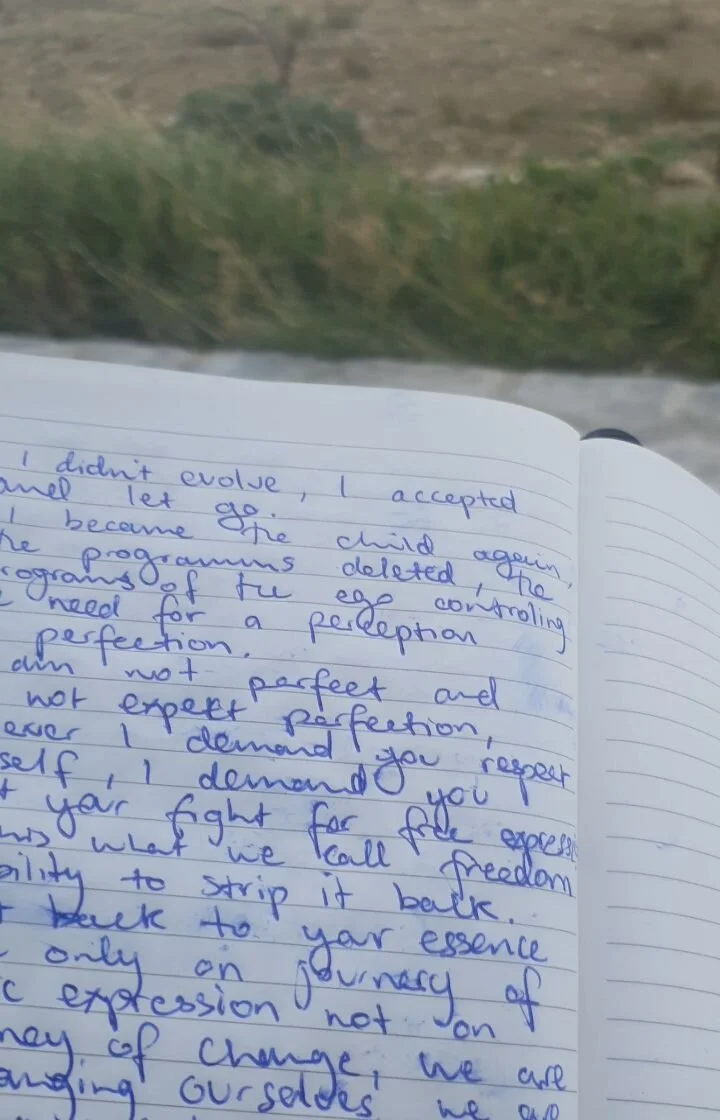 I didn't evolve, I accepted
and let go.
I became the child again,
he programms deleted, the
rograms of the ego controling
need for a perception
perfection.
am not perfect and
not expekt perfection,
ever I demand you respect
self, I demand you
t your fight for free expressi
his what we call freedom
bility to strip it back.
t back to your essence
only on journery of
c expression not on
ney of change, we are
anging ourselves we are